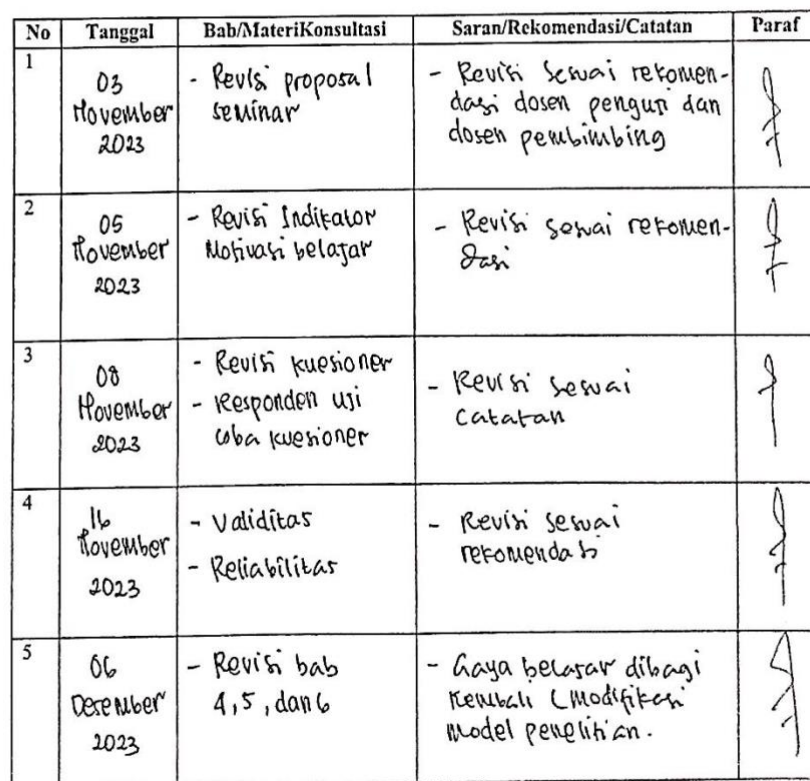 No Tanggal Bab/MateriKonsultasi Saran/Rekomendasi/Catatan Paraf
1
03
November
2023
- Revisi proposal
seminar
- Revisi sesuai rekomen-
dasi dosen penguji dan
dosen pembimbing
2
05
November
2023
- Revisi Indikator
Motivasi belajar
- Revisi sesuai rekomen-
dasi
3
08
November
2023
- Revisi kuesioner
- Responden uji
coba kuesioner
- Revisi sesuai
catatan
4
16
November
2023
- Validitas
- Reliabilitas
- Revisi sesuai
rekomendasi
5
06
Desember
2023
- Revisi bab
4, 5, dan 6
- Gaya belajar dibagi
kembali (Modifikasi
Model penelitian.